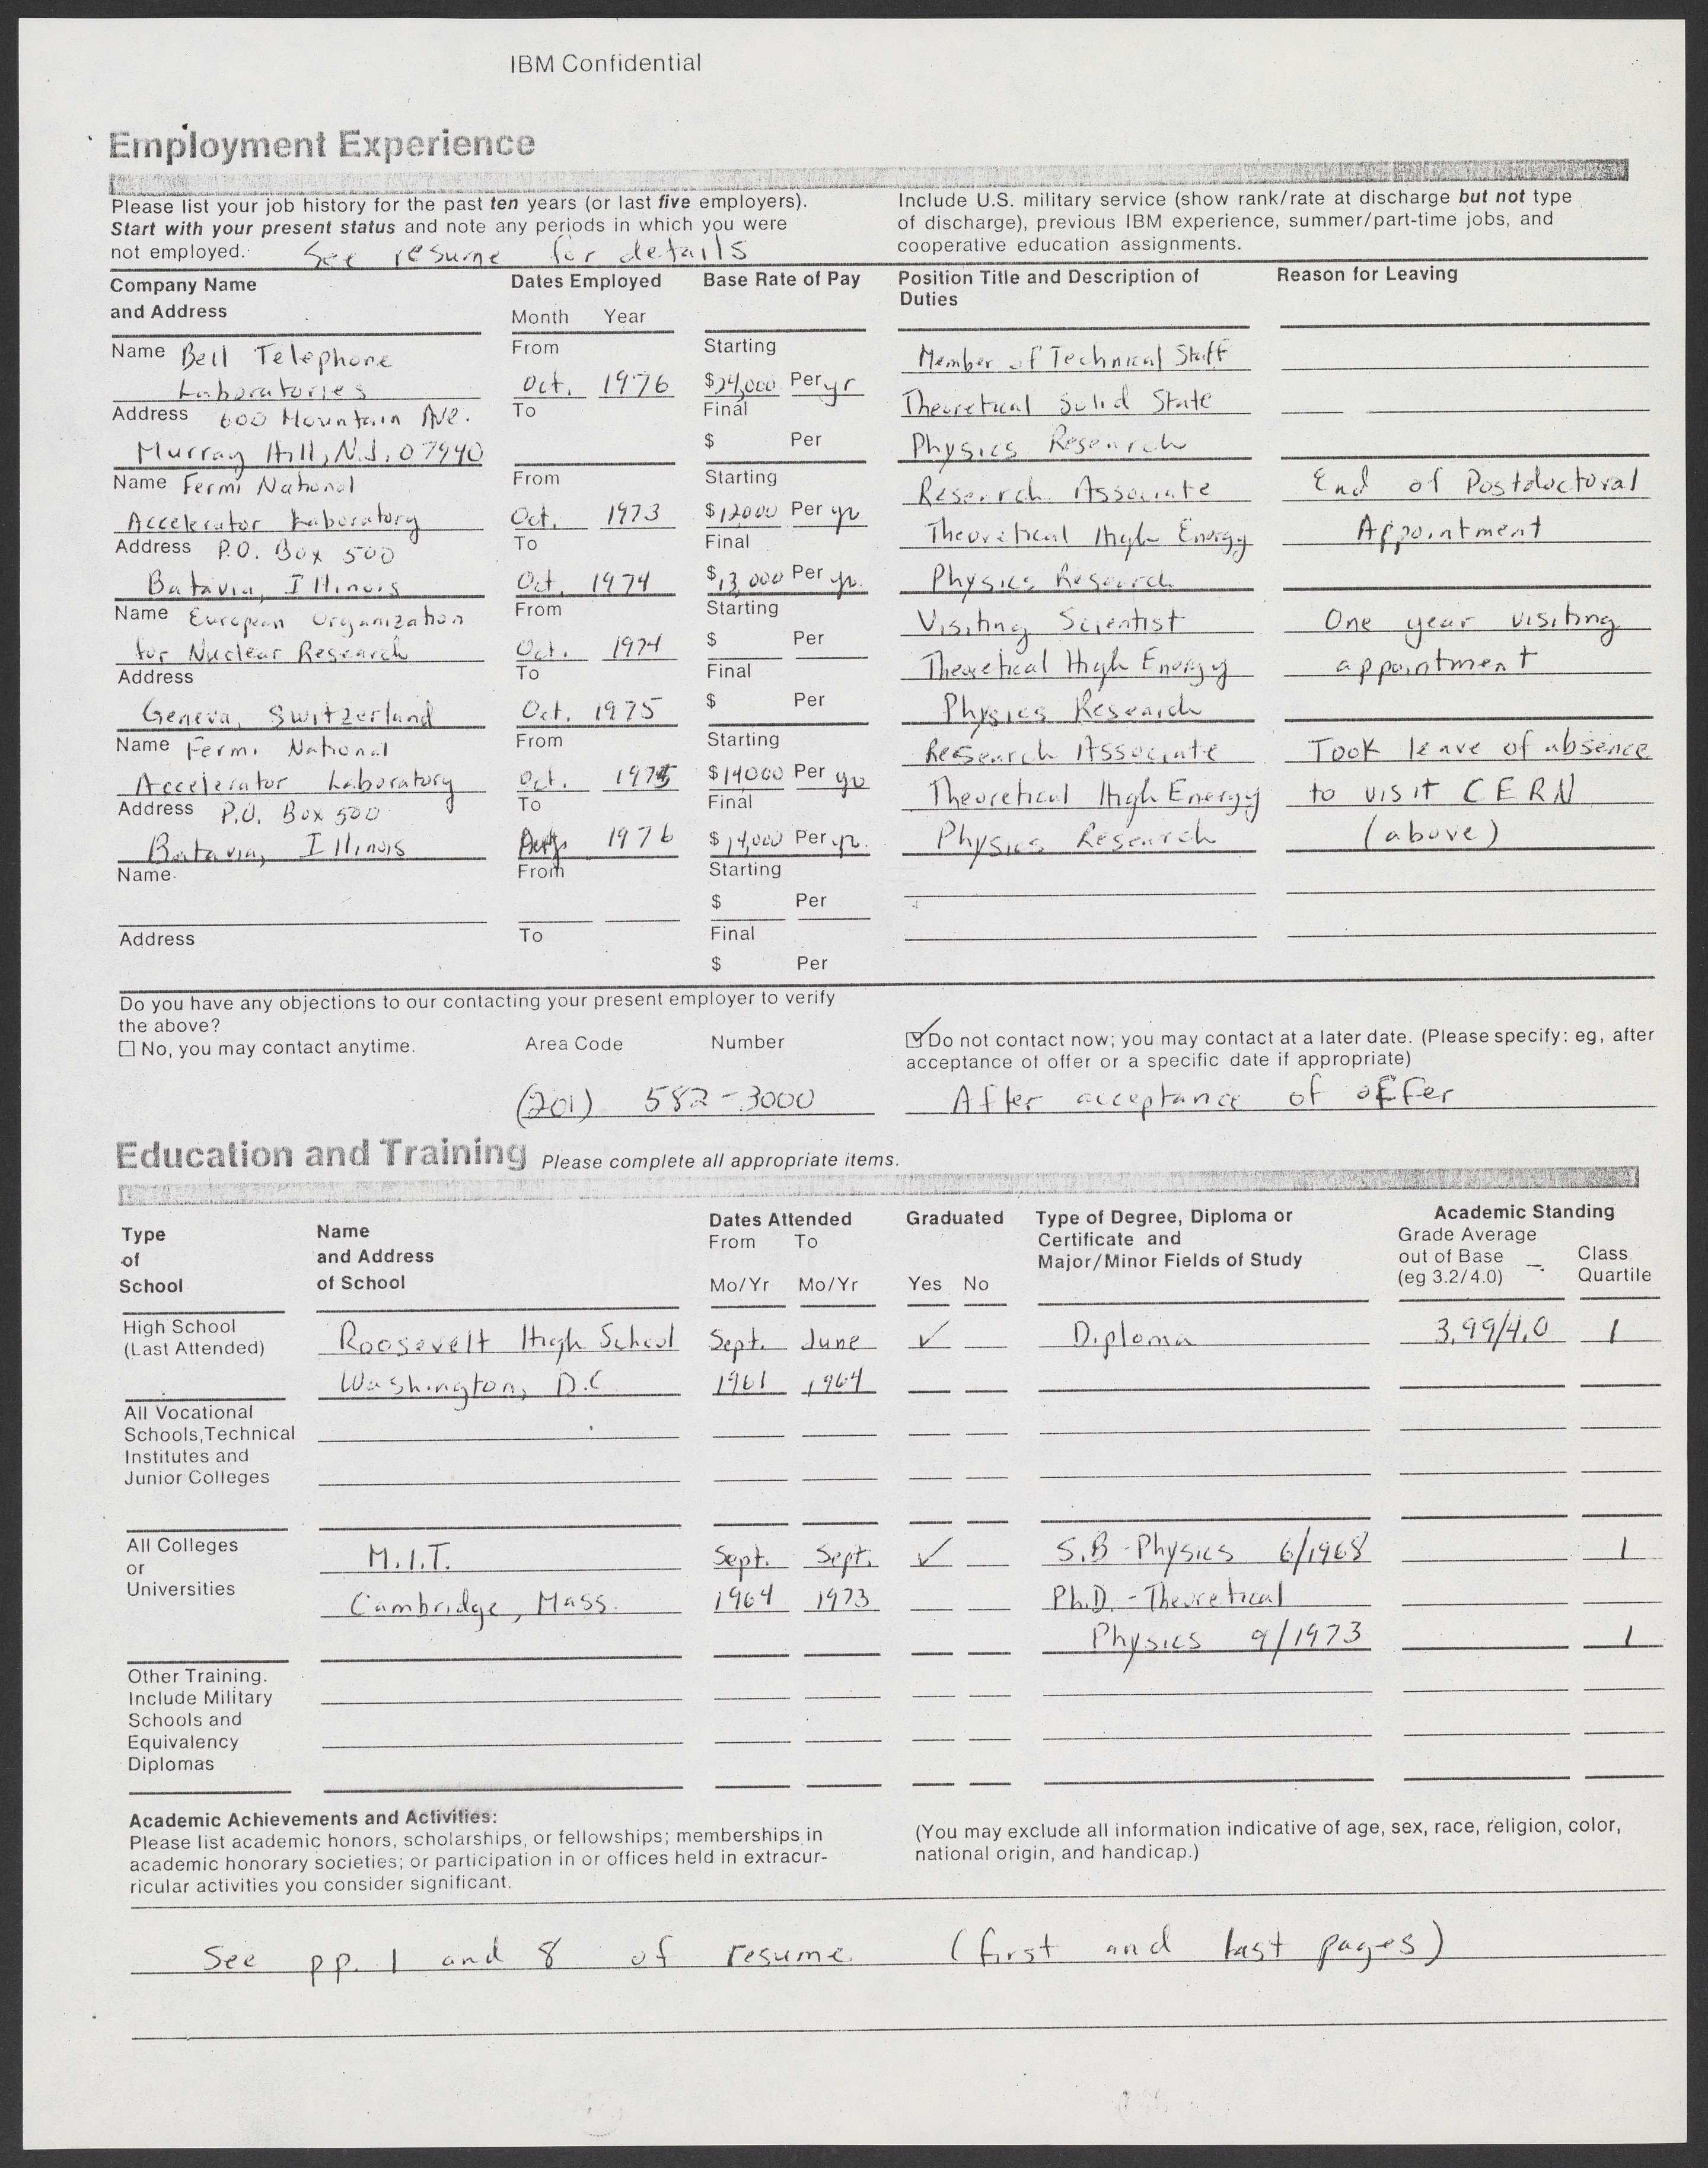 IBM Confidential
Employment Experience
Please list your job history for the past ten years (or last five employers).
Start with your present status and note any periods in which you were
not employed. See resume for details
Include U.S. military service (show rank/rate at discharge but not type
of discharge), previous IBM experience, summer/part-time jobs, and
cooperative education assignments.
Company Name
and Address
Dates Employed
Month Year
Base Rate of Pay
Position Title and Description of
Duties
Reason for Leaving
Name Bell Telephone
Laboratories
Address 600 Mountain Ave.
Murray Hill, N.J. 07940
From
Oct. 1976
To
Starting
$24,000 Per yr
Final
$ Per
Member of Technical Staff
Theoretical Solid State
Physics Research
Name Fermi National
Accelerator Laboratory
Address P.O. Box 500
Batavia, Illinois
From
Oct. 1973
To
Oct. 1974
Starting
$12000 Per yr
Final
$13,000 Per yr.
Research Associate
Theoretical High Energy
Physics Research
End of Postdoctoral
Appointment
Name European Organization
for Nuclear Research
Address
Geneva, Switzerland
From
Oct. 1974
To
Oct. 1975
Starting
$ Per
Final
$ Per
Visiting Scientist
Theoretical High Energy
Physics Research
One year visiting
appointment
Name Fermi National
Accelerator Laboratory
Address P.O. Box 500
Batavia, Illinois
From
Oct. 1975
To
Aug. 1976
Starting
$14000 Per yr
Final
$14,000 Per yr.
Research Associate
Theoretical High Energy
Physics Research
Took leave of absence
to visit CERN
(above)
Name
Address
From
To
Starting
$ Per
Final
$ Per
Do you have any objections to our contacting your present employer to verify
the above?
No, you may contact anytime.
Area Code Number
(201) 582-3000
Do not contact now; you may contact at a later date. (Please specify: eg, after
acceptance of offer or a specific date if appropriate)
After acceptance of offer
Education and Training Please complete all appropriate items.
Type
of
School
Name
and Address
of School
Dates Attended
From To
Mo/Yr Mo/Yr
Graduated
Yes No
Type of Degree, Diploma or
Certificate and
Major/Minor Fields of Study
Academic Standing
Grade Average
out of Base
(eg 3.2/4.0)
Class
Quartile
High School
(Last Attended)
Roosevelt High School Sept. June ✓ Diploma 3.99/4.0 1
Washington, D.C. 1961 1964
All Vocational
Schools, Technical
Institutes and
Junior Colleges
All Colleges
or
Universities
M.I.T. Sept. Sept. ✓ S.B - Physics 6/1968 1
Cambridge, Mass. 1964 1973 Ph.D. - Theoretical
Physics 9/1973 1
Other Training.
Include Military
Schools and
Equivalency
Diplomas
Academic Achievements and Activities:
Please list academic honors, scholarships, or fellowships; memberships in
academic honorary societies; or participation in or offices held in extracur-
ricular activities you consider significant.
(You may exclude all information indicative of age, sex, race, religion, color,
national origin, and handicap.)
See pp. 1 and 8 of resume (first and last pages)